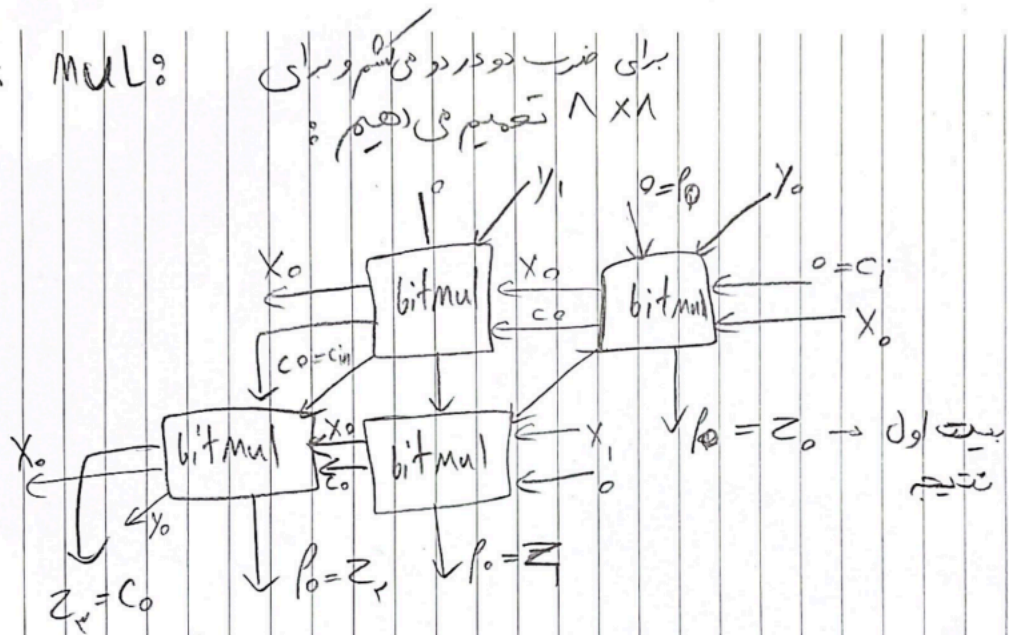 mul:
برای ضرب دو در دو می کشم و برای
۸×۸ تعمیم می دهیم :
0 y₁ 0=P₀ y₀
X₀ bitmul X₀ bitmul 0=Ci
C0 X₀
C0=Cin
X₀ bitmul X₀ bitmul X₁
C0 0
P₀=Z₀ → بیت اول
نتیجه
y₀
Z₃=C0 P₀=Z₂ P₀=Z₁